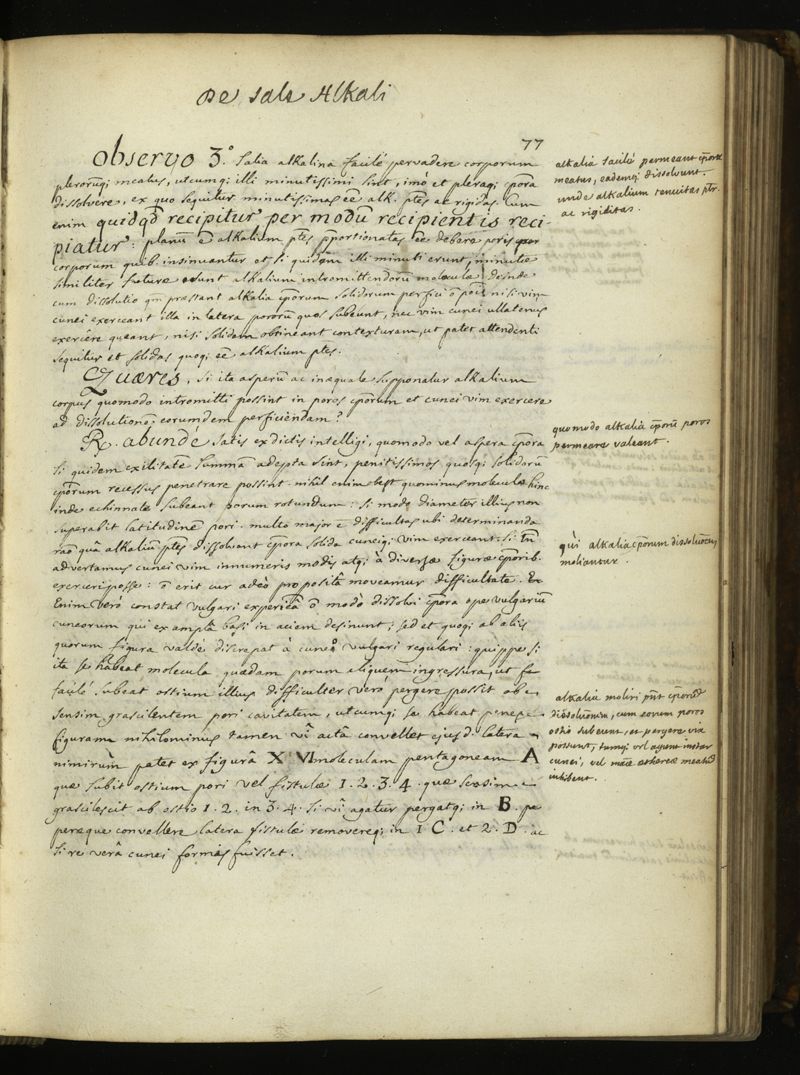 De Sale Alkali
77
Observo 3.° Salia alkalina facilè pervadere corporum
plerorūq; meatus, utcumq; illi minutissimi sint, imò et pleraq; cp̄ora
dissolvere, ex quo sequitur minutissimas eē alk. p̄tes ac rigidas. Cum
enim quidqd̄ recipitur per modū recipientis reci-
piatur: planū ē alkalium p̄tes p̄portionatas eē debere poris
corporum quib. insinuantur et si quidem illi minuti erunt, minutiæ
similiter futuræ sunt alkalium intromittendorū moleculæ deinde
cum dissolutio qm̄ præstant alkalia cp̄orum solidorum perfici ō possit nisi vim
cunei exerceant illa in latera pororū quos subeunt, nec vim cunei ullatenus
exercere queant, nisi solidam obtineant contexturam, ut patet attendenti
sequitur et solidas quoq; eē alkalium p̄tes.
Quæres, si ita asperū ac inæquale supponatur alkalium
corpus quomodo intromitti possint in poros cp̄orum et cunei vim exercere
ad dissolutionē eorumdem perficiendam?
R. abunde satis ex dictis intelligi, quomodo vel aspera cp̄ora
si quidem exilitatē summā adepta sint, penitissimos quosq; solidorū
cp̄orum recessus penetrare possint. nihil enim obest quominus moleculæ hinc
inde echinatæ subeant porum rotundum: si modo diameter illius non
superabit latitudinē pori. multo major ē difficultas ubi determinanda
raō quâ alkaliū p̄tes dissolvant cp̄ora solida cuneiq; vim exerceant: si tn̄
advertamus cunei vim innumeris modis atq; à diversæ figuræ cp̄orib.
exerceri posse: ō erit cur adeò propositâ moveamur difficultate. Et
Enim verò constat vulgari experiēâ ō modò dissolvi cp̄ora ope vulgariū
cuneorum qui ex amplâ basi in aciem desinunt; sed et quoq; ab aliis
quorum figura valdè discrepat à cuneo vulgari regulari: quippe si
ita se habeat molecula quædam porum aliquem ingressura, ut
facilè subeat ostium illius difficulter verò pergere possit ob
sensim grascilentem pori cavitatem, utcumq; se habeat penes
figuram nihilominus tamen vî actâ convellet ejusd. latera
nimirum patet ex figurâ XVI moleculam pentagoneam A
quæ subit ostium pori vel fistulæ 1. 2. 3. 4. quæ sensim
grascilescit ab ostio 1. 2. in 3. 4. si vî agatur pergatq; in B. pe
peræque convellere latera fistulæ removereq; in 1 C. et 2. D. ac
si re verâ cunei formâ fuisset.
alkalia facilè permeant cp̄orū
meatus, eademq; dissolvunt.
unde alkalium tenuitas p̄t.
ac rigiditas.
quomodo alkalia cp̄orū poros
permeare valeant.
quî alkalia cp̄orum dissolutionem
moliantur.
alkalia moliri p̄nt cp̄orū
dissolutionem, cum eorum poros
ostio subeunt, et pergere viâ
possunt, tumq; vel agunt instar
cunei, vel mām ætheream meatib.
inhibent.